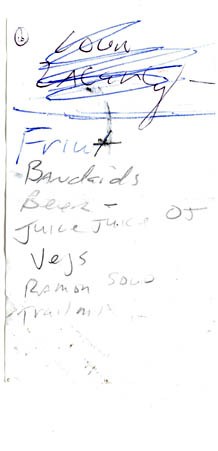 Fruit
Bandaids
Beer -
Juice Juice OJ
Vegs
Ramon Soup
Trail mi